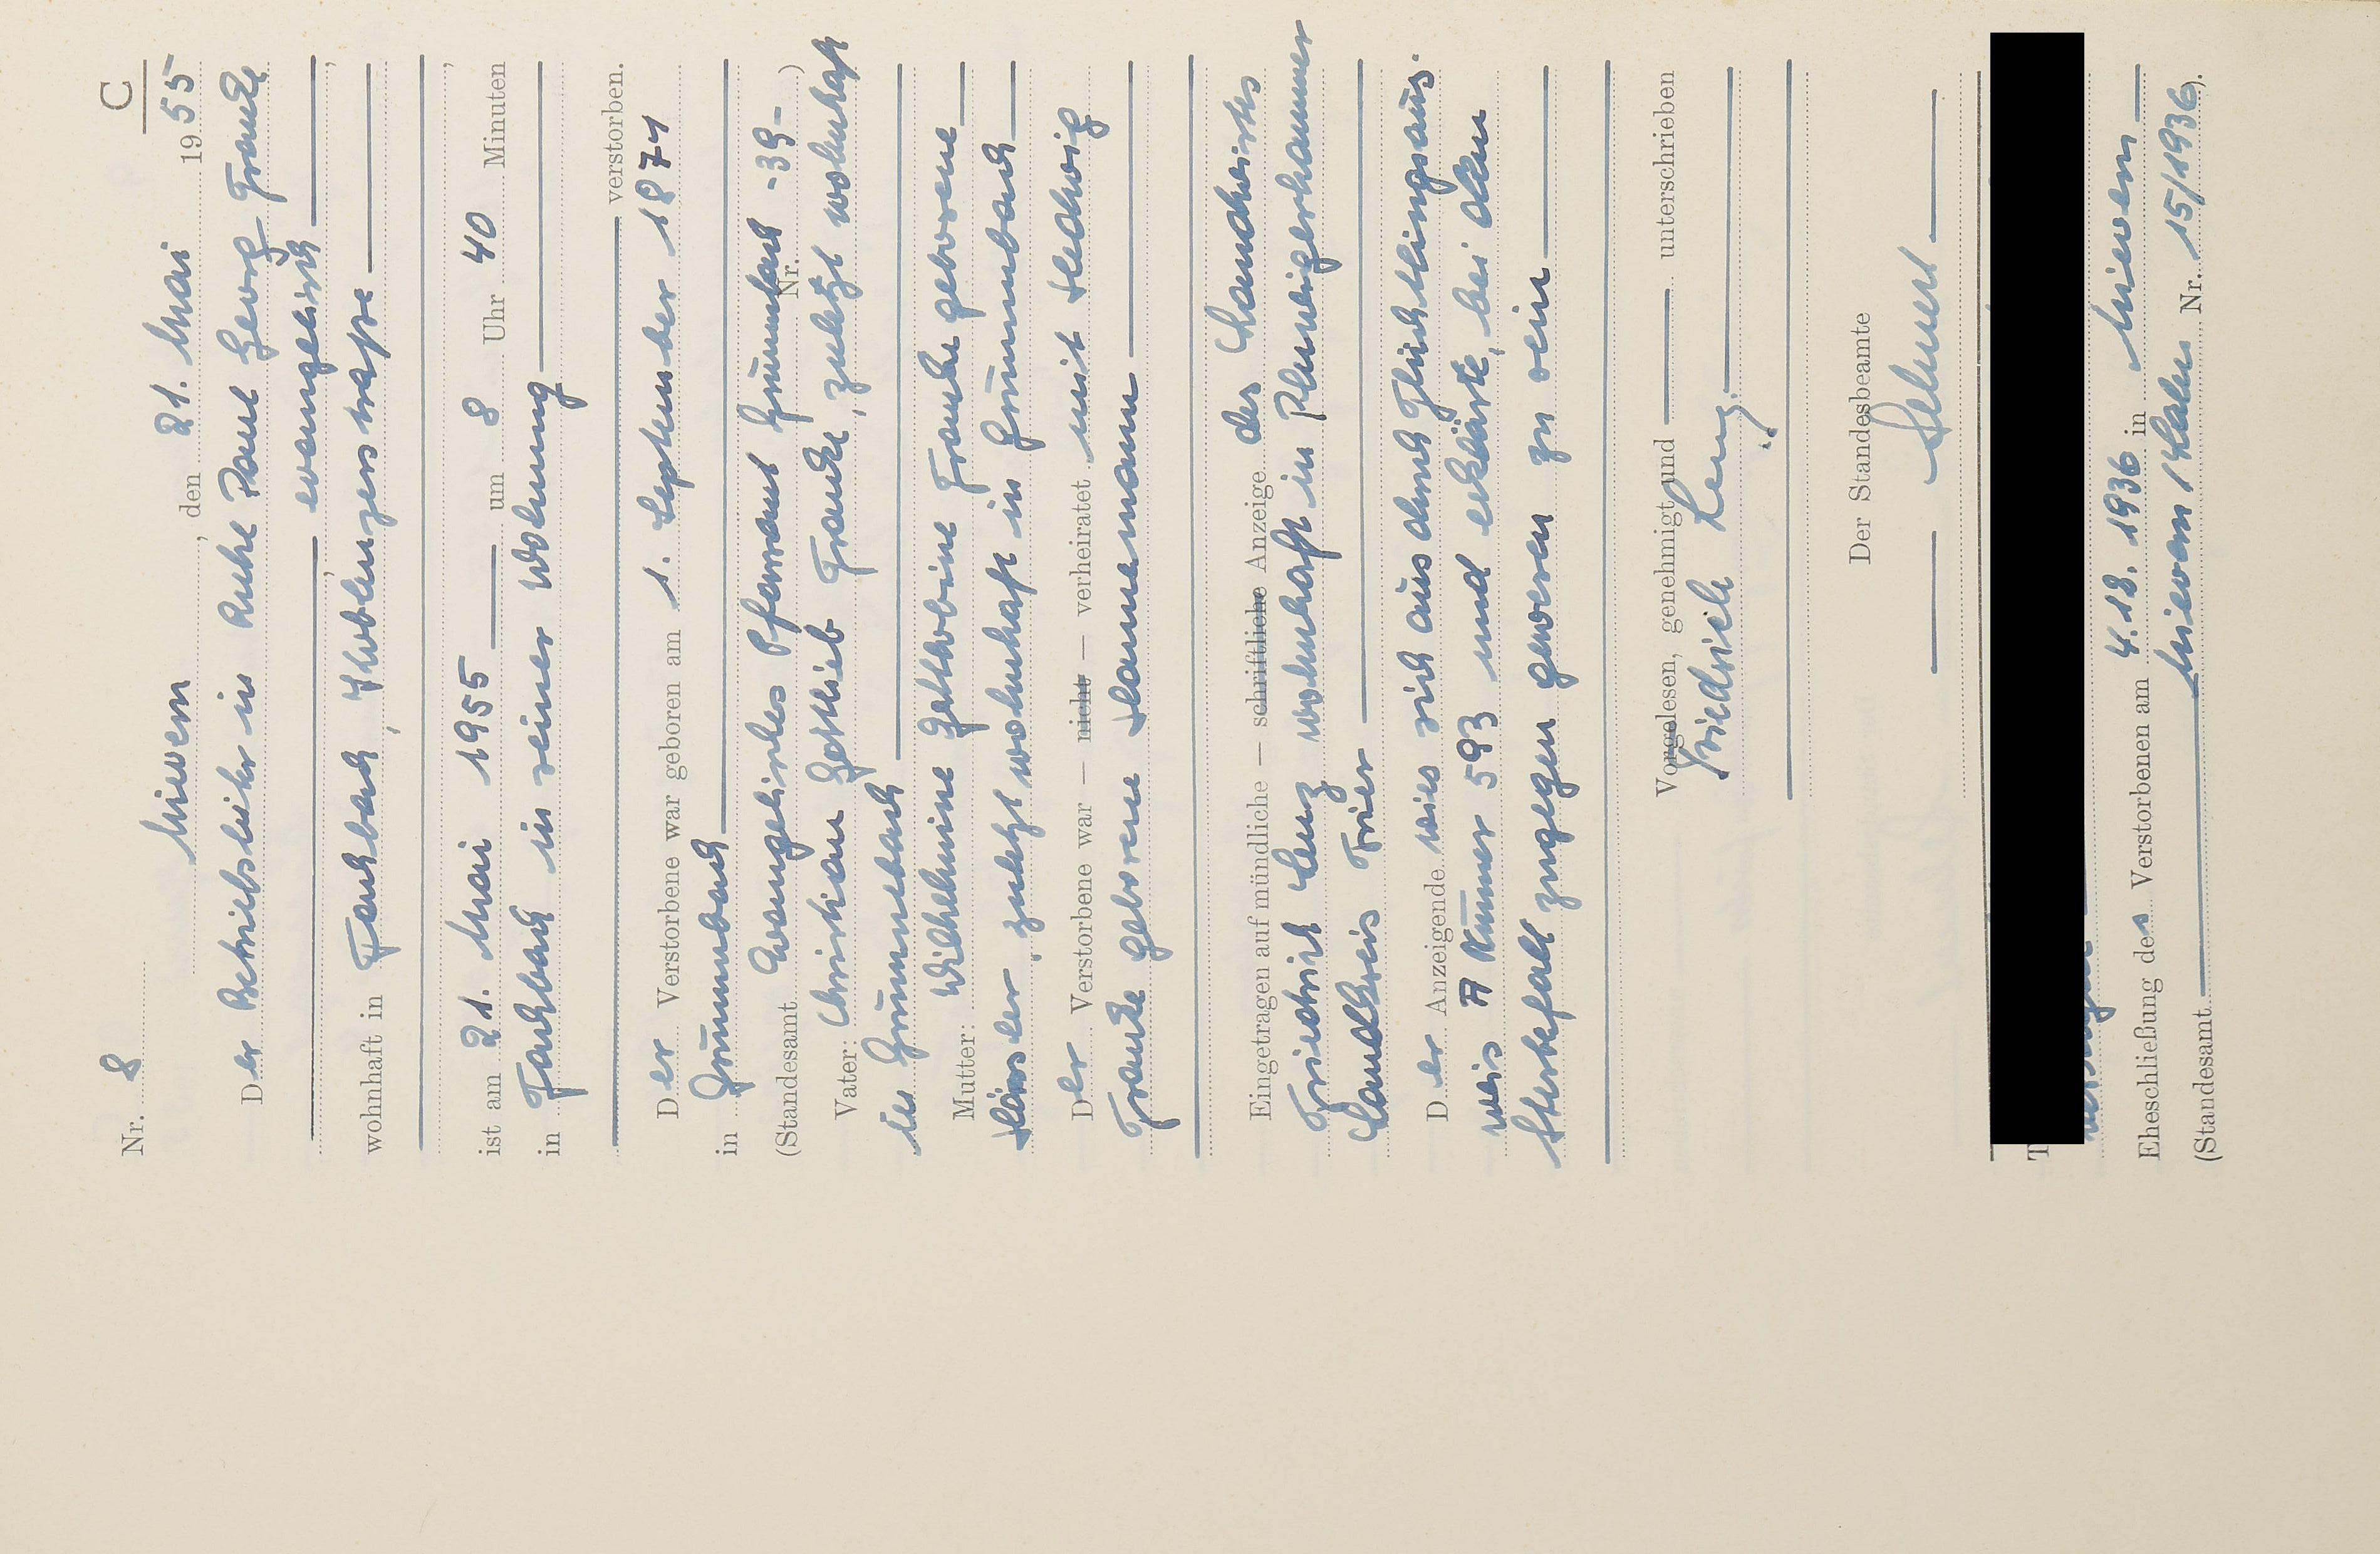 C
Nr. 8
Miesem, den 21. Mai 1955
Der Betriebsleiter in Ruhe Paul Georg Franke
evangelisch,
wohnhaft in Fachbach, Koblenzerstraße,
ist am 21. Mai 1955 um 8 Uhr 40 Minuten
in Fachbach in seiner Wohnung
verstorben.
Der Verstorbene war geboren am 1. September 1871
in Grumbach
(Standesamt Evangelisches Pfarramt Grumbach Nr. -39-)
Vater: Christian Gottlieb Franke, zuletzt wohnhaft
in Grumbach
Mutter: Wilhelmine Gottlobine Franke geborene
Häusler, zuletzt wohnhaft in Grumbach
Der Verstorbene war — nicht — verheiratet mit Hedwig
Franke geborene Hannemann
Eingetragen auf mündliche — schriftliche Anzeige des Landwirtes
Friedrich Lenz wohnhaft in
Landkreis Trier
Der Anzeigende wies sich aus durch Flüchtlingsaus-
weis A Nummer 593 und erklärte, bei dem
Sterbefall zugegen gewesen zu sein
Vorgelesen, genehmigt und unterschrieben
Friedrich Lenz.
Der Standesbeamte
T
Eheschließung des Verstorbenen am 4.12.1936 in
(Standesamt Nr. 15/1936).